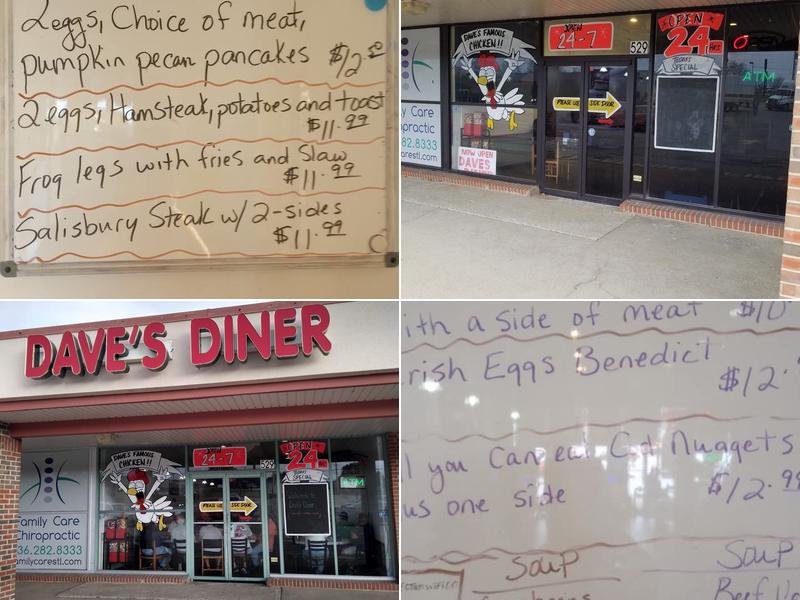 2eggs, Choice of meat,
pumpkin pecan pancakes $12.50
2eggs, Hamsteak, potatoes and toast
$11.99
Frog legs with fries and Slaw
$11.99
Salisbury Steak w/ 2-sides
$11.99
DAVE'S FAMOUS
CHICKEN!!
OPEN
24-7
529
OPEN
24 HRS
TODAYS
SPECIAL
OPEN
ATM
PLEASE USE SIDE DOOR
NOW OPEN
DAVES
y Care
opractic
82.8333
arestl.com
DAVE'S DINER
DAVE'S FAMOUS
CHICKEN!!
OPEN
24-7
529
OPEN
24
TODAYS
SPECIAL
ATM
PLEASE USE SIDE DOOR
Welcome to
amily Care
hiropractic
36.282.8333
milycarestl.com
ith a side of meat $10
rish Eggs Benedict
$12.
l you Can eat Cod Nuggets
us one side $12.99
Soup Soup
Beef